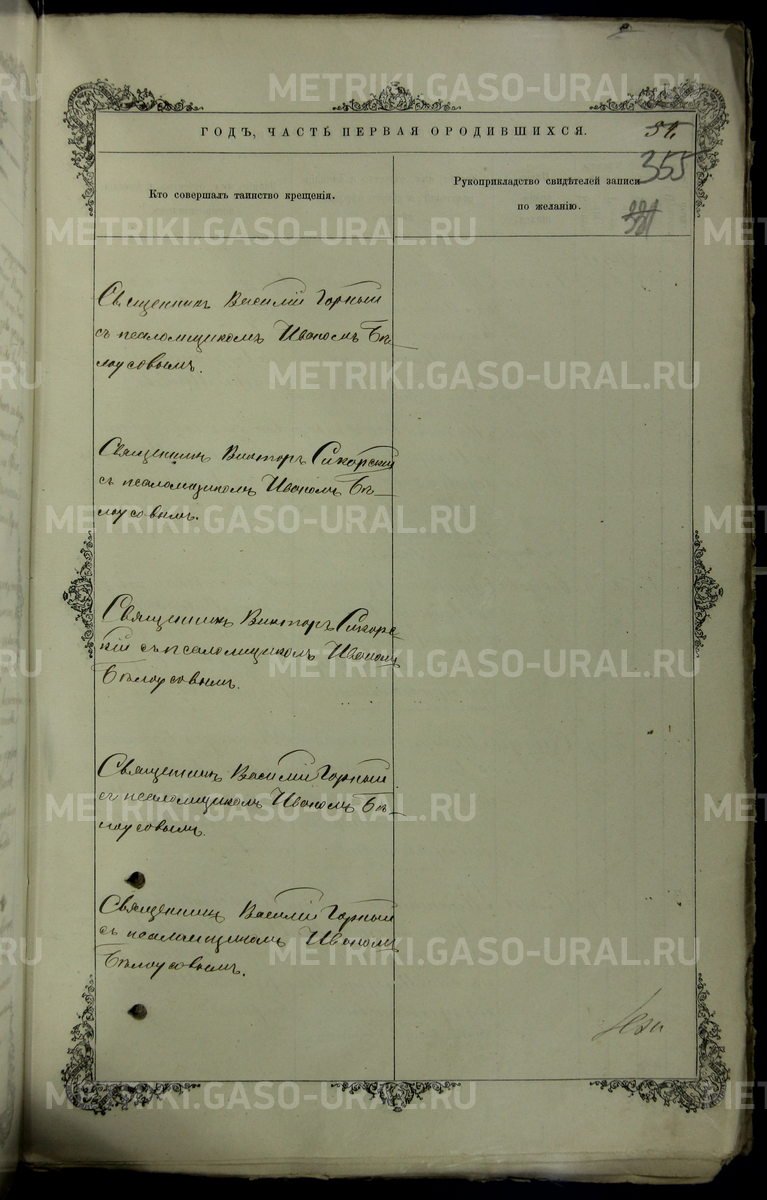 ГОДЪ, ЧАСТЬ ПЕРВАЯ О РОДИВШИХСЯ.
54.
355
Кто совершалъ таинство крещенія.
Рукоприкладство свидѣтелей записи
по желанію.
Священникъ Василій Горный
съ псаломщикомъ Иваномъ Бѣ-
лоусовымъ.
Священникъ Викторъ Сикорскій
съ псаломщикомъ Иваномъ Бѣ-
лоусовымъ.
Священникъ Викторъ Сикорс-
кій съ псаломщикомъ Иваномъ
Бѣлоусовымъ.
Священникъ Василій Горный
съ псаломщикомъ Иваномъ Бѣ-
лоусовымъ.
Священникъ Василій Горный
съ псаломщикомъ Иваномъ
Бѣлоусовымъ.
METRIKI.GASO-URAL.RU